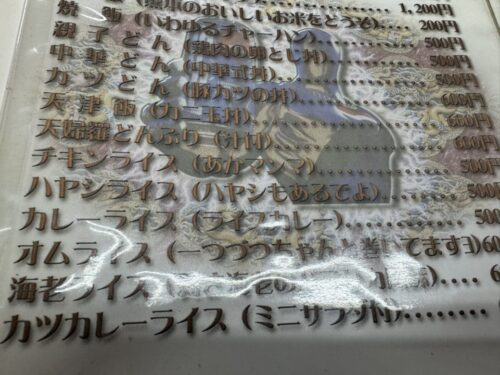 のおいしいお米をどうぞ)........ 1,200円
焼 (いわゆるチャーハン)........ 200円
親子どん (鶏肉の卵とじ丼)........ 500円
中華どん (中華式丼)........ 500円
カツどん (豚カツの丼)........ 600円
天津飯 (カニ玉丼)........ 600円
天婦羅どんぶり (汁丼)........ 600円
チキンライス (あかマンマ)........ 500円
ハヤシライス (ハヤシもあるでよ)........ 500
カレーライス (ライスカレー)........ 50
オムライス (一つづつちゃんと巻いてますヨ) 60
海老ライス ( 海老の )..... 6
カツカレーライス (ミニサラダ付)........